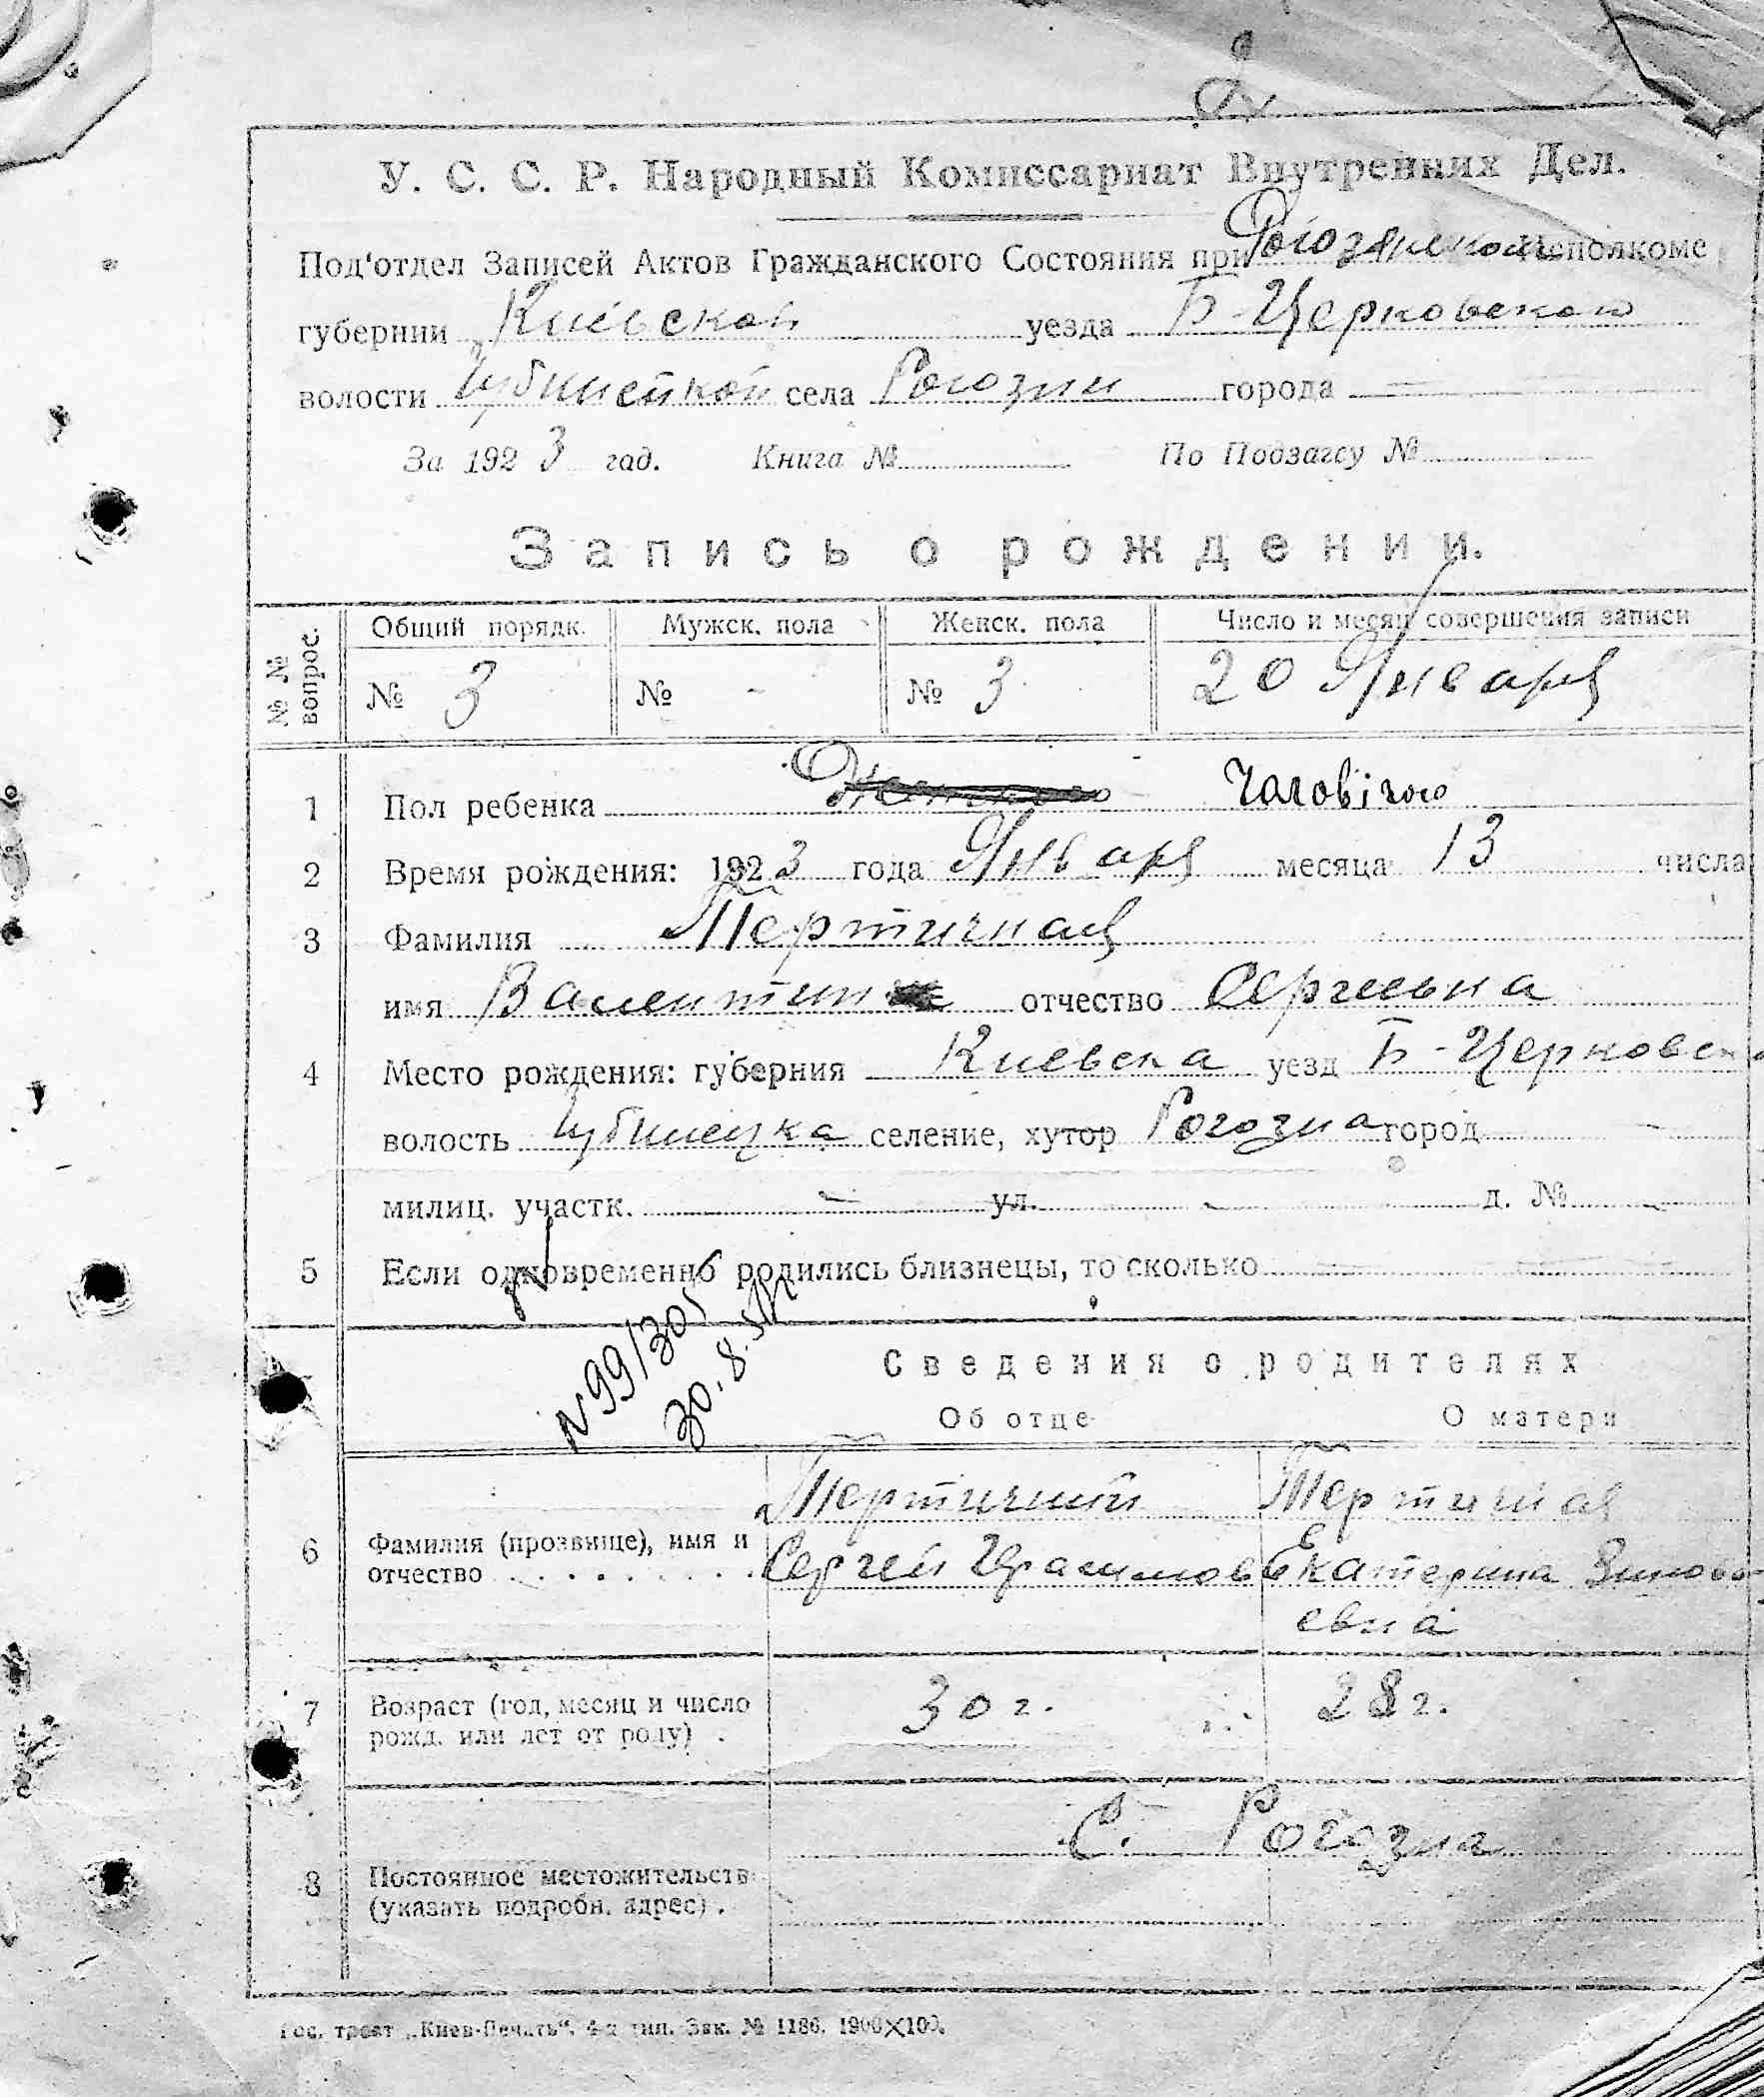 У. С. С. Р. Народный Комиссариат Внутренних Дел.
Под'отдел Записей Актов Гражданского Состояния при Рогозянском Исполкоме
губернии Киевской уезда Б-Церковского
волости села Рогозни города
За 1923 год. Книга № По Подзагсу №
Запись о рождении.
№ № вопрос. Общий порядк. Мужск. пола Женск. пола Число и месяц совершения записи
№ 3 № - № 3 20 Января
1 Пол ребенка Женского Чоловічого
2 Время рождения: 1923 года Января месяца 13 числа
3 Фамилия Тертичная
имя Валентин отчество Сергиевна
4 Место рождения: губерния Киевска уезд Б-Церковск
волость селение, хутор Рогозна город -
милиц. участк. - ул. - д. № -
5 Если одновременно родились близнецы, то сколько
N 99/305
30.8.
Сведения о родителях
Об отце О матери
Тертичний Тертичная
6 Фамилия (прозвище), имя и отчество Сергей Екатерина
евна
7 Возраст (год, месяц и число рожд. или лет от роду) 30 г. 28 г.
С. Рогозна
8 Постоянное местожительств
(указать подробн. адрес).
Гос. трест „Киев-Печать“. 4-я тип. Зак. № 1186. 1900×100.